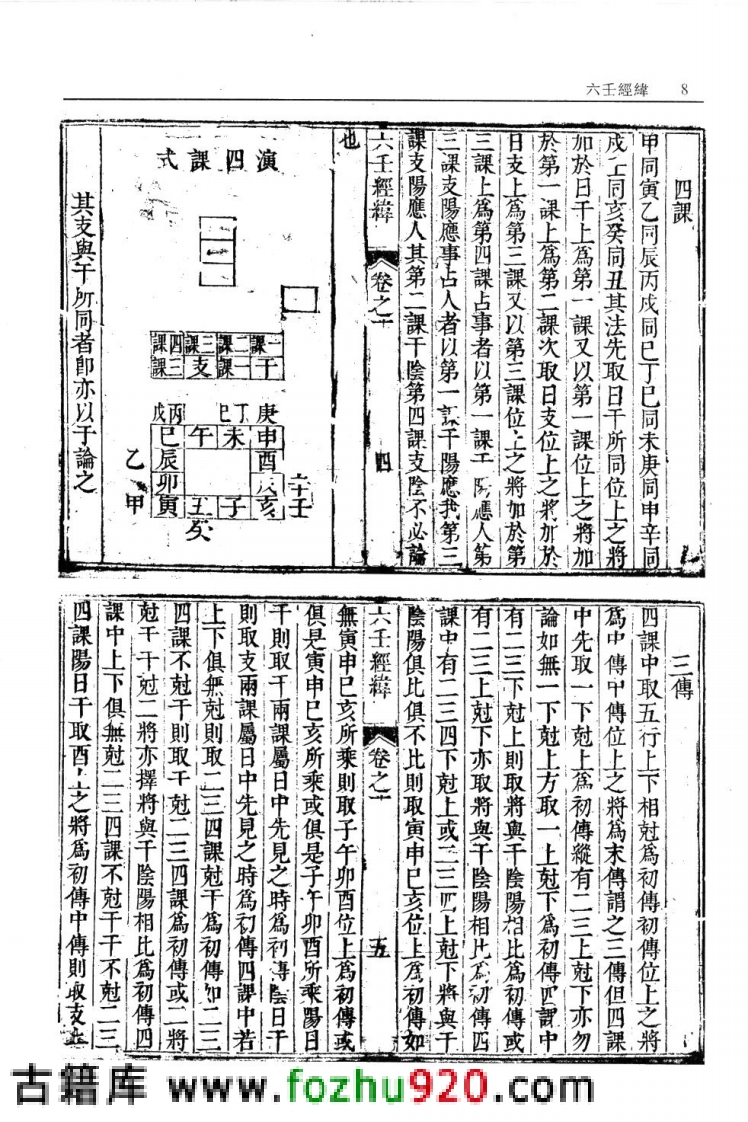 六壬經緯 8
四課
甲同寅乙同辰丙戊同巳丁巳同未庚同申辛同
戌壬同亥癸同丑其法先取日干所同位上之將
加於日干上爲第一課又以第一課位上之將加
於第一課上爲第二課次取日支位上之將加於
日支上爲第三課又以第三課位上之將加於第
三課上爲第四課占事者以第一課干陽應人第
三課支陽應事占人者以第一課干陽應我第三
課支陽應人其第二課干陰第四課支陰不必論
六壬經緯 卷之一 四
也
演四課式
一課 二課 三課 四課
干 一課 支 三課
庚 丁巳 丙戊
申 未 午 巳
酉 辰
戌 卯
亥 子 丑 寅
辛壬
癸
乙
甲
其支與干所同者卽亦以干論之
三傳
四課中取五行上下相尅爲初傳初傳位上之將
爲中傳中傳位上之將爲末傳謂之三傳但四課
中先取一下尅上爲初傳縱有二三上尅下亦勿
論如無一下尅上方取一上尅下爲初傳四課中
有二三下尅上則取將與干陰陽相比爲初傳或
有二三上尅下亦取將與干陰陽相比爲初傳四
課中有二三四下尅上或二三四上尅下將與干
陰陽俱比俱不比則取寅申巳亥位上爲初傳如
六壬經緯 卷之一 五
無寅申巳亥所乘則取子午卯酉位上爲初傳或
俱是寅申巳亥所乘或俱是子午卯酉所乘陽日
干則取干兩課屬日中先見之時爲初傳陰日干
則取支兩課屬日中先見之時爲初傳四課中若
上下俱無尅則取二三四課尅干爲初傳如二三
四課不尅干則取干尅二三四課爲初傳或二將
尅干干尅二將亦擇將與干陰陽相比爲初傳四
課中上下俱無尅二三四課不尅干干不尅二三
四課陽日干取酉上之將爲初傳中傳則取支上
古籍库 www.fozhu920.com